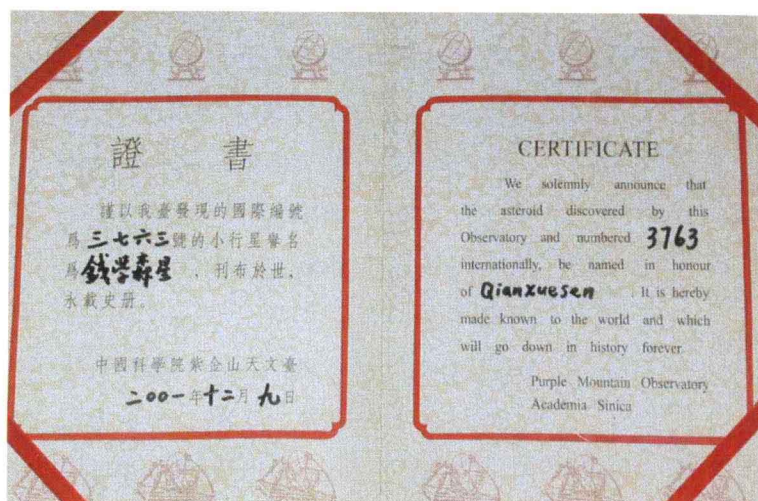 證 書
謹以我臺發現的國際編號
爲三七六三號的小行星譽名
爲錢学森星 、刊布於世、
永載史册。
中國科學院紫金山天文臺
二〇〇一年十二月九日
CERTIFICATE
We solemnly announce that
the asteroid discovered by this
Observatory and numbered 3763
internationally, be named in honour
of Qianxuesen . It is hereby
made known to the world and which
will go down in history forever.
Purple Mountain Observatory
Academia Sinica